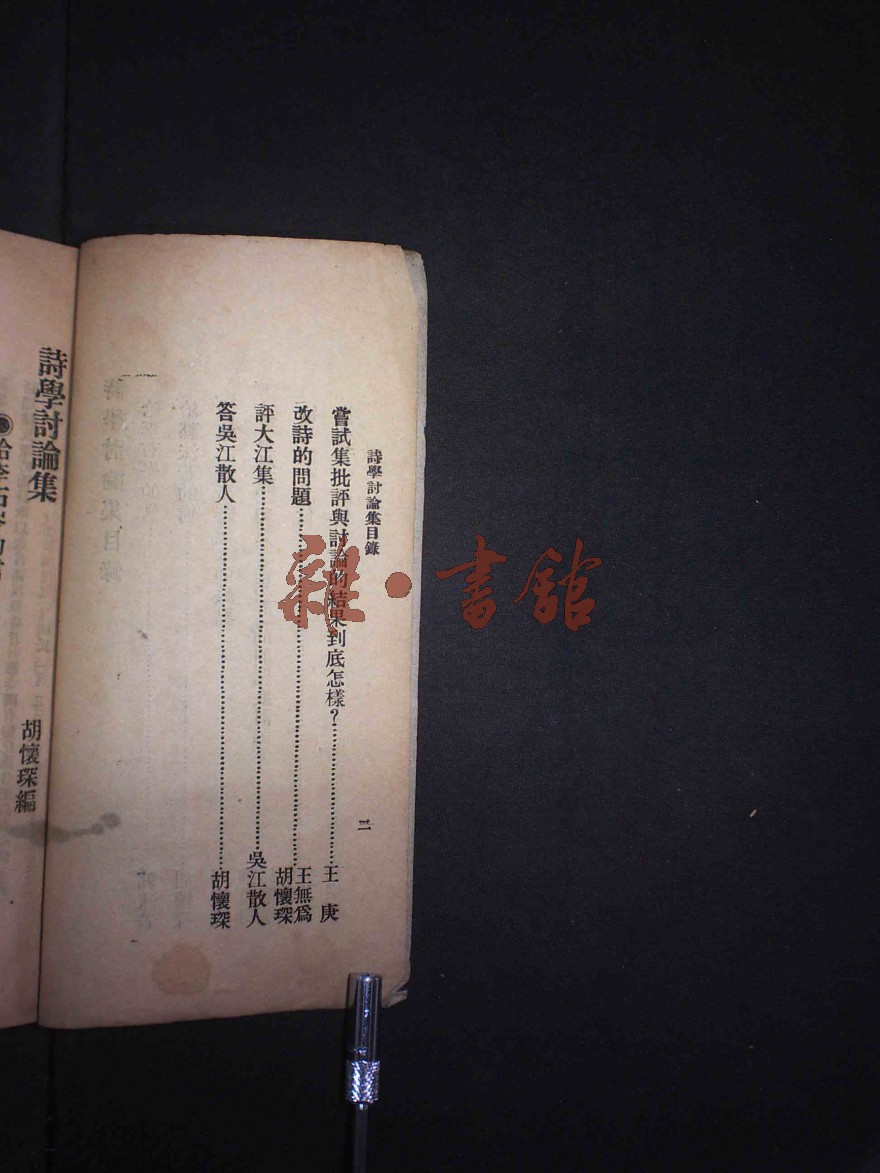 詩學討論集目錄
二
嘗試集批評與討論的結果到底怎樣？……王庚
改詩的問題……王無爲 胡懷琛
評大江集……吳江散人
答吳江散人……胡懷琛
詩學討論集
胡懷琛編
雜·書館